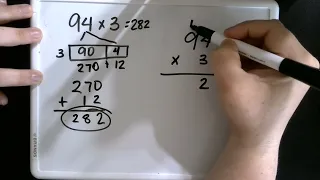 94 × 3 = 282
3 90 4
270 + 12
270
+ 12
282
94
× 3
2